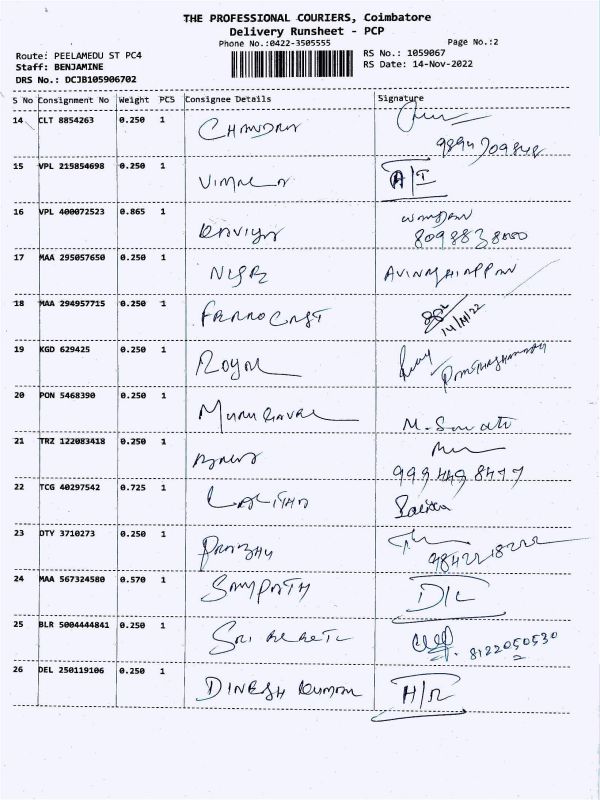 THE PROFESSIONAL COURIERS, Coimbatore
Delivery Runsheet - PCP
Phone No.:0422-3505555
Page No.:2
Route: PEELAMEDU ST PC4
RS No.: 1059067
Staff: BENJAMINE
RS Date: 14-Nov-2022
DRS No.: DCJB105906702
S No Consignment No Weight PCS Consignee Details Signature
14 CLT 8854263 0.250 1 CHANDRA
15 VPL 215854698 0.250 1 VIMALA A/I
16 VPL 400072523 0.865 1 KAVIYA
17 MAA 295057650 0.250 1 AVINASHIAPPAN
18 MAA 294957715 0.250 1 FERRO CAST 14/11/22
19 KGD 629425 0.250 1 ROYAL
20 PON 5468390 0.250 1 MURUGAVEL
21 TRZ 122083418 0.250 1
22 TCG 40297542 0.725 1 LALITHA Lalitha
23 DTY 3710273 0.250 1 PRABHU
24 MAA 567324580 0.570 1 SAMPATH D/L
25 BLR 5004444841 0.250 1 8122050530
26 DEL 250119106 0.250 1 DINESH KUMAR H/R